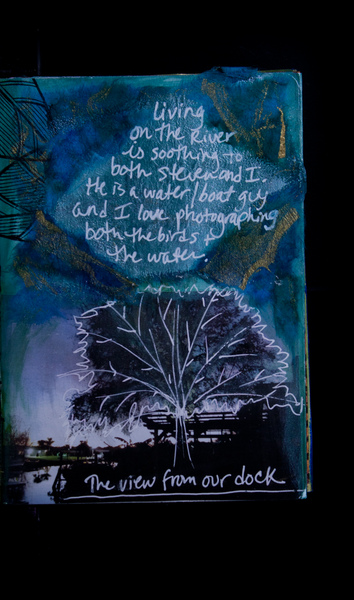 Living
on the River
is soothing to
both Steven and I.
He is a water/boat guy
and I love photographing
both the birds +
the water.
The view from our dock